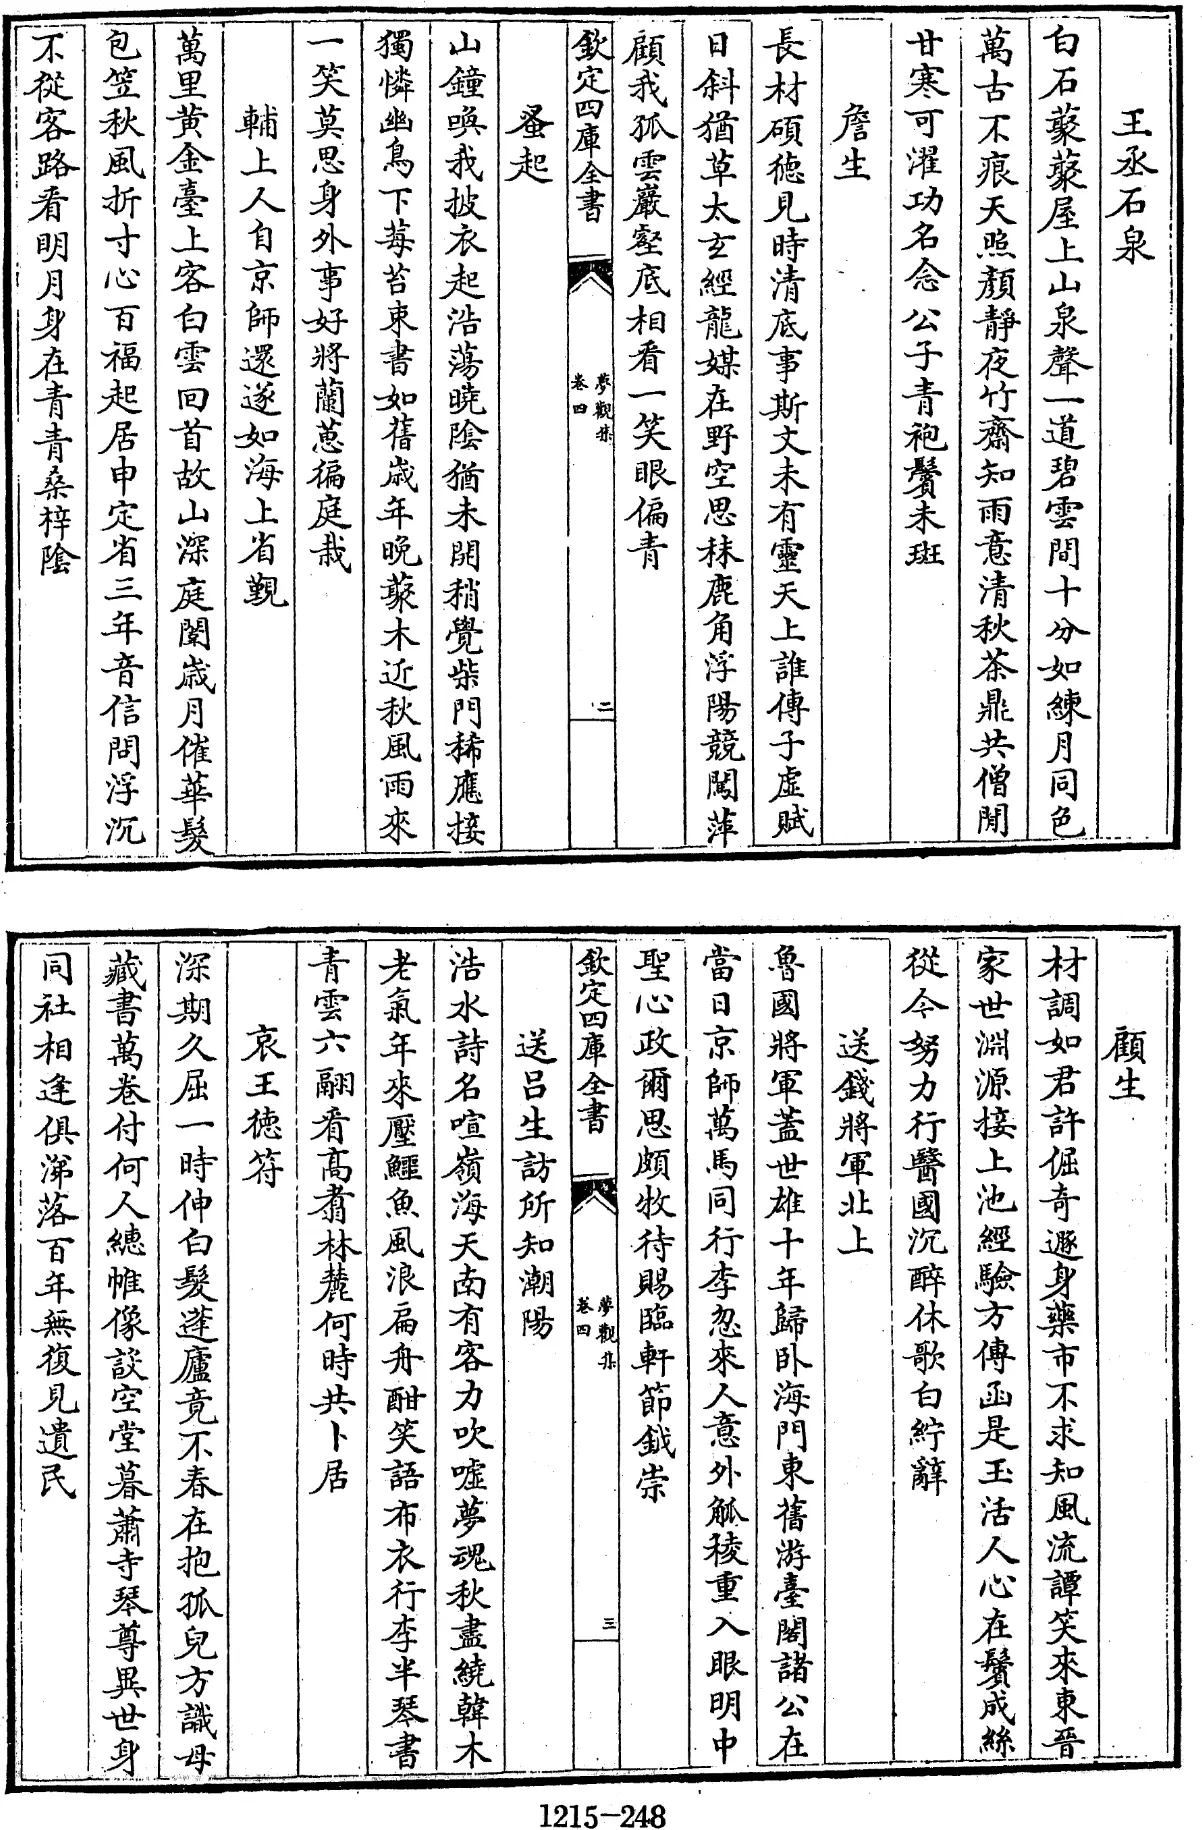 王丞石泉
白石藂藂屋上山泉聲一道碧雲間十分如練月同色
萬古不痕天照顏靜夜竹齋知雨意清秋茶鼎共僧閒
甘寒可濯功名念公子青袍鬢未斑
詹生
長材碩徳見時清底事斯文未有靈天上誰傳子虛賦
日斜猶草太玄經龍媒在野空思秣鹿角浮陽競闖萍
顧我孤雲巖壑底相看一笑眼偏青
欽定四庫全書
夢觀集
卷四
二
蚤起
山鐘喚我披衣起浩蕩曉陰猶未開稍覺柴門稀應接
獨憐幽鳥下莓苔東書如舊歳年晩藂木近秋風雨來
一笑莫思身外事好將蘭蕙徧庭栽
輔上人自京師還遂如海上省覲
萬里黄金臺上客白雲回首故山深庭闈歳月催華髮
包笠秋風折寸心百福起居申定省三年音信問浮沉
不從客路看明月身在青青桑梓陰
顧生
材調如君許倔奇遯身藥市不求知風流譚笑來東晉
家世淵源接上池經驗方傳函是玉活人心在鬢成絲
從今努力行醫國沉醉休歌白紵辭
送錢將軍北上
魯國將軍蓋世雄十年歸卧海門東舊游臺閣諸公在
當日京師萬馬同行李忽來人意外觚稜重入眼明中
聖心政爾思頗牧待賜臨軒節鉞崇
欽定四庫全書
夢觀集
卷四
三
送呂生訪所知潮陽
浩水詩名喧嶺海天南有客力吹噓夢魂秋盡繞韓木
老氣年來壓鱷魚風浪扁舟酣笑語布衣行李半琴書
青雲六翮看高翥林麓何時共卜居
哀王徳符
深期久屈一時伸白髮蘧廬竟不春在抱孤兒方識母
藏書萬巻付何人繐帷像設空堂暮蕭寺琴尊異世身
同社相逢俱涕落百年無復見遺民
1215-248